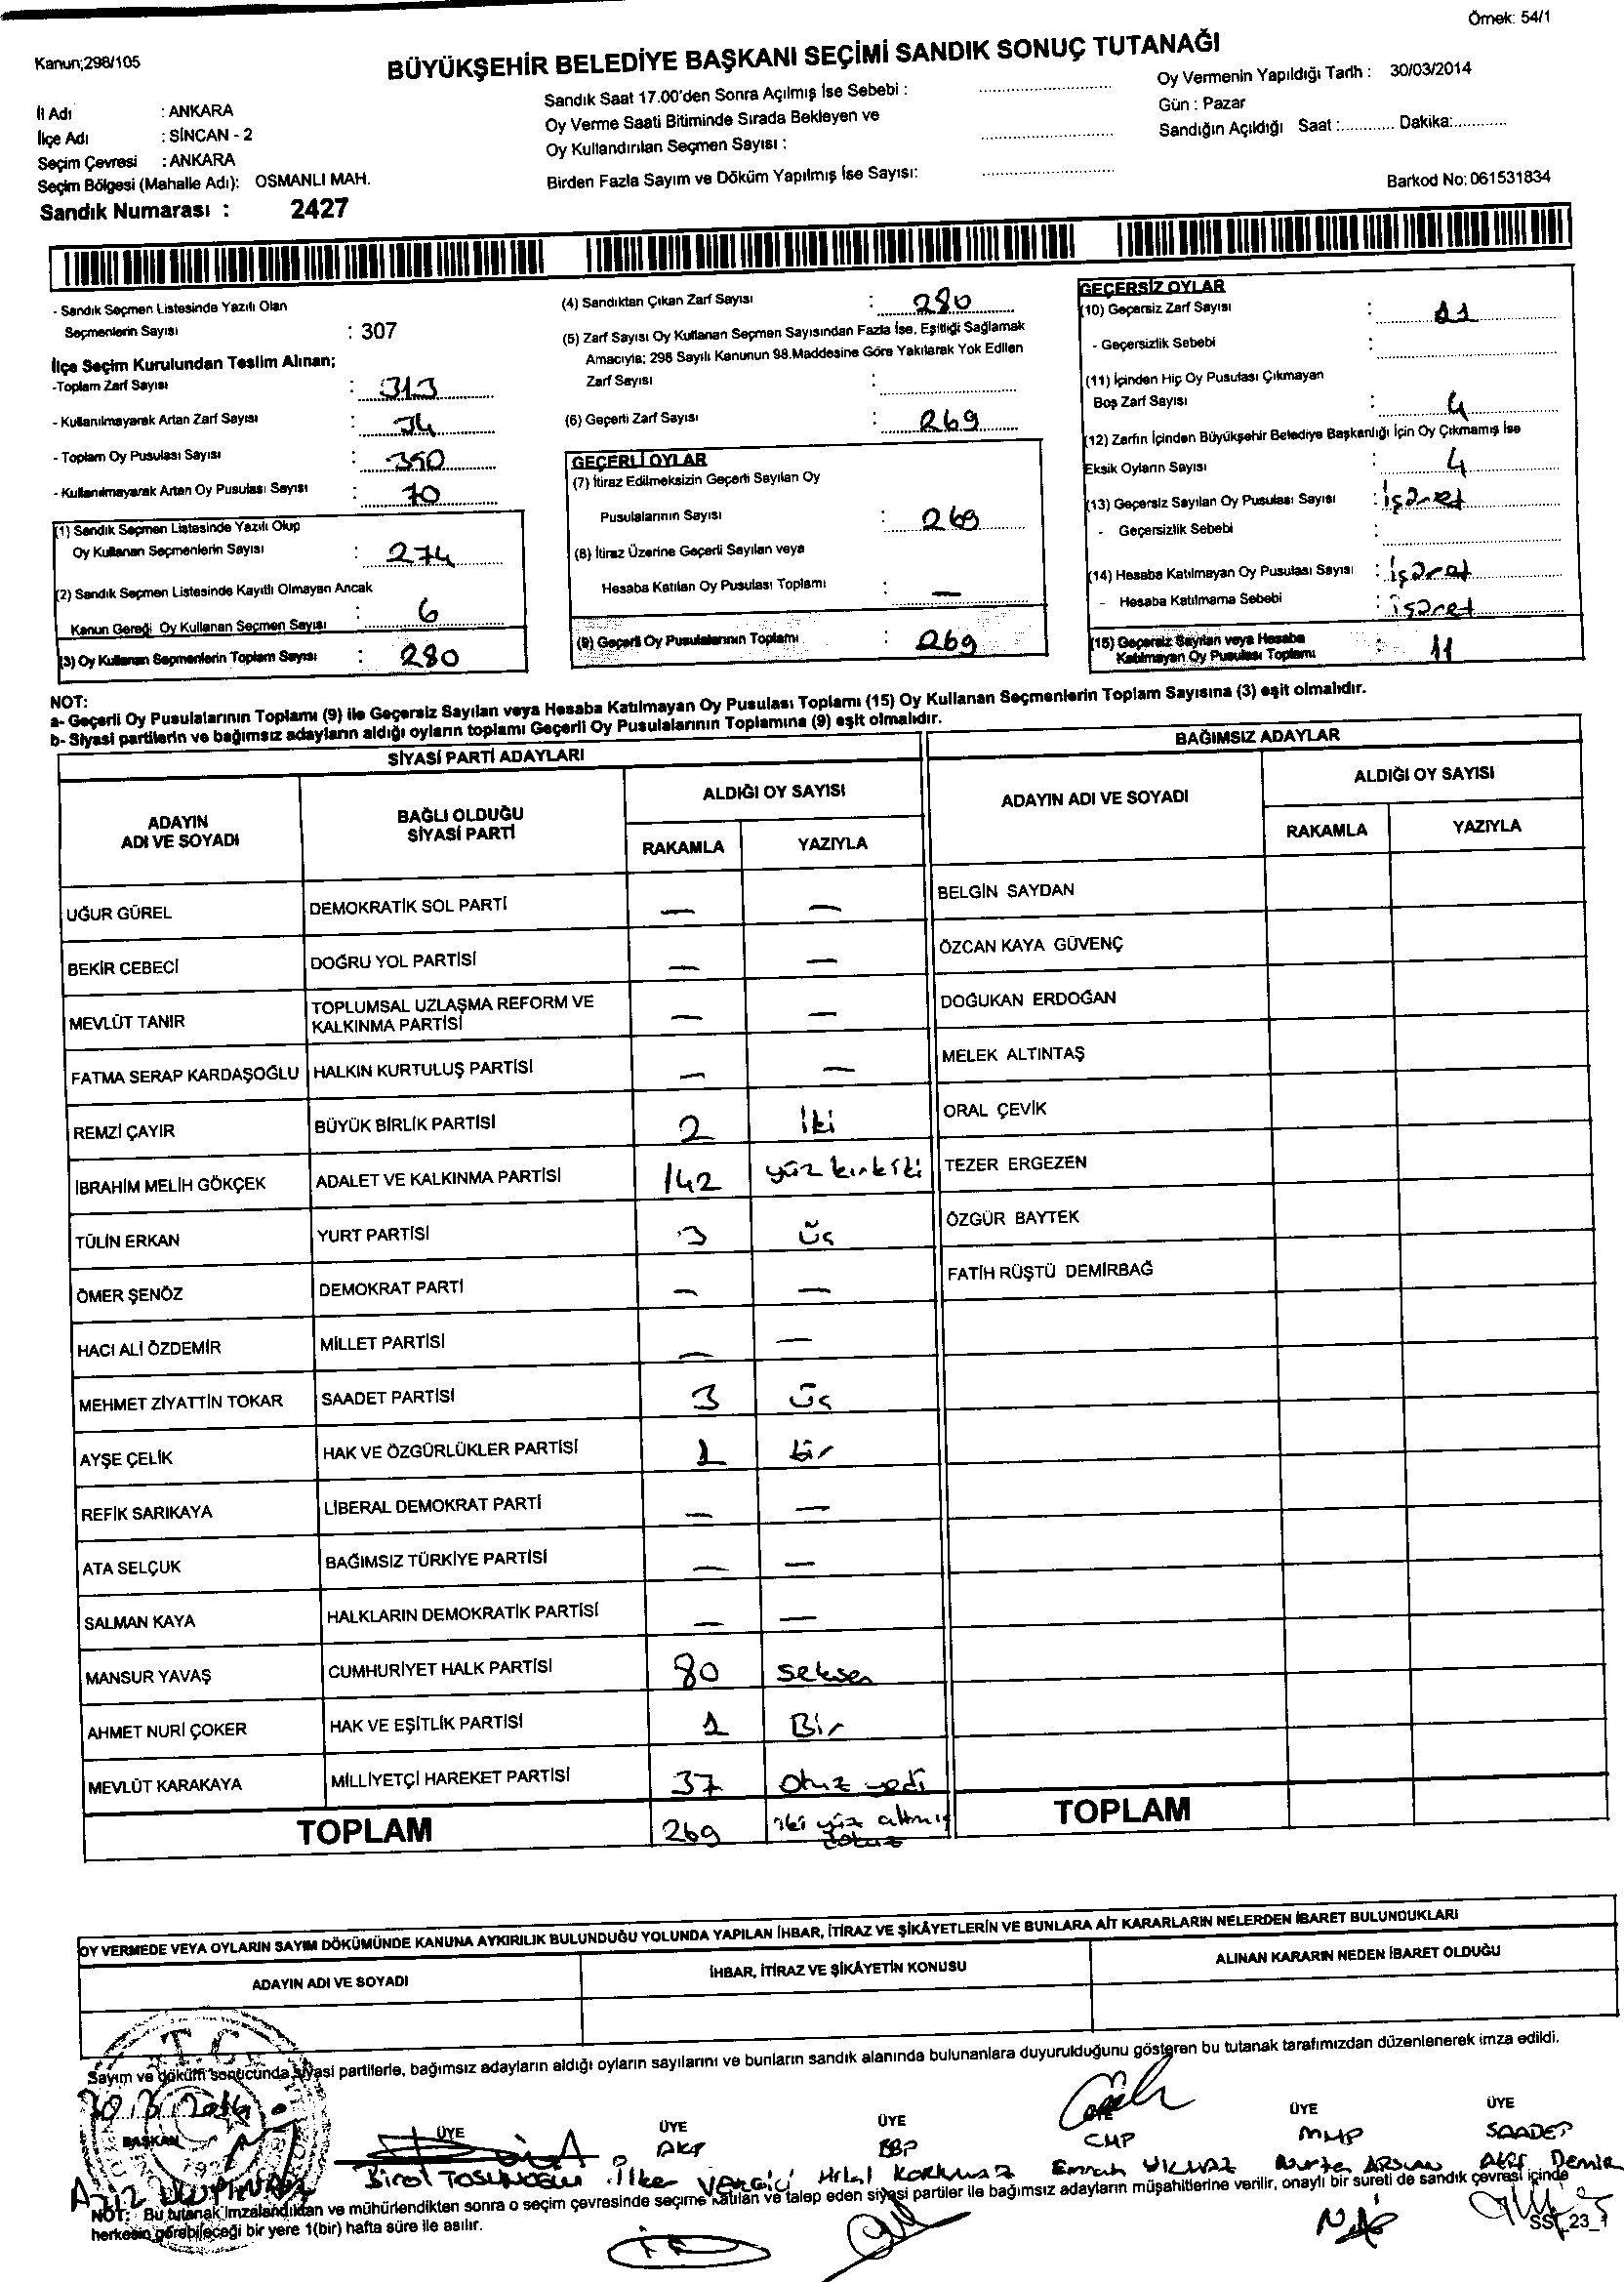 Örnek: 54/1
Kanun;298/105
BÜYÜKŞEHİR BELEDİYE BAŞKANI SEÇİMİ SANDIK SONUÇ TUTANAĞI
İl Adı : ANKARA
İlçe Adı : SİNCAN - 2
Seçim Çevresi : ANKARA
Seçim Bölgesi (Mahalle Adı): OSMANLI MAH.
Sandık Numarası : 2427
Sandık Saat 17.00'den Sonra Açılmış İse Sebebi :
Oy Verme Saati Bitiminde Sırada Bekleyen ve
Oy Kullandırılan Seçmen Sayısı :
Birden Fazla Sayım ve Döküm Yapılmış İse Sayısı:
Oy Vermenin Yapıldığı Tarih : 30/03/2014
Gün : Pazar
Sandığın Açıldığı Saat :............ Dakika:............
Barkod No: 061531834
- Sandık Seçmen Listesinde Yazılı Olan
Seçmenlerin Sayısı : 307
İlçe Seçim Kurulundan Teslim Alınan;
-Toplam Zarf Sayısı : 313
- Kullanılmayarak Artan Zarf Sayısı : 34
- Toplam Oy Pusulası Sayısı : 350
- Kullanılmayarak Artan Oy Pusulası Sayısı : 70
(1) Sandık Seçmen Listesinde Yazılı Olup
Oy Kullanan Seçmenlerin Sayısı : 274
(2) Sandık Seçmen Listesinde Kayıtlı Olmayan Ancak
Kanun Gereği Oy Kullanan Seçmen Sayısı : 6
(3) Oy Kullanan Seçmenlerin Toplam Sayısı : 280
(4) Sandıktan Çıkan Zarf Sayısı : 280
(5) Zarf Sayısı Oy Kullanan Seçmen Sayısından Fazla İse, Eşitliği Sağlamak
Amacıyla; 298 Sayılı Kanunun 98.Maddesine Göre Yakılarak Yok Edilen
Zarf Sayısı :
(6) Geçerli Zarf Sayısı : 269
GEÇERLİ OYLAR
(7) İtiraz Edilmeksizin Geçerli Sayılan Oy
Pusulalarının Sayısı : 269
(8) İtiraz Üzerine Geçerli Sayılan veya
Hesaba Katılan Oy Pusulası Toplamı : —
(9) Geçerli Oy Pusulalarının Toplamı : 269
GEÇERSİZ OYLAR
(10) Geçersiz Zarf Sayısı : 11
- Geçersizlik Sebebi :
(11) İçinden Hiç Oy Pusulası Çıkmayan
Boş Zarf Sayısı : 4
(12) Zarfın İçinden Büyükşehir Belediye Başkanlığı İçin Oy Çıkmamış İse
Eksik Oyların Sayısı : 4
(13) Geçersiz Sayılan Oy Pusulası Sayısı : işaret
- Geçersizlik Sebebi :
(14) Hesaba Katılmayan Oy Pusulası Sayısı : işaret
- Hesaba Katılmama Sebebi : işaret
(15) Geçersiz Sayılan veya Hesaba
Katılmayan Oy Pusulası Toplamı : 11
NOT:
a- Geçerli Oy Pusulalarının Toplamı (9) ile Geçersiz Sayılan veya Hesaba Katılmayan Oy Pusulası Toplamı (15) Oy Kullanan Seçmenlerin Toplam Sayısına (3) eşit olmalıdır.
b- Siyasi partilerin ve bağımsız adayların aldığı oyların toplamı Geçerli Oy Pusulalarının Toplamına (9) eşit olmalıdır.
SİYASİ PARTİ ADAYLARI
ADAYIN ADI VE SOYADI
BAĞLI OLDUĞU SİYASİ PARTİ
ALDIĞI OY SAYISI
RAKAMLA YAZIYLA
UĞUR GÜREL DEMOKRATİK SOL PARTİ — —
BEKİR CEBECİ DOĞRU YOL PARTİSİ — —
MEVLÜT TANIR TOPLUMSAL UZLAŞMA REFORM VE KALKINMA PARTİSİ — —
FATMA SERAP KARDAŞOĞLU HALKIN KURTULUŞ PARTİSİ — —
REMZİ ÇAYIR BÜYÜK BİRLİK PARTİSİ 2 iki
İBRAHİM MELİH GÖKÇEK ADALET VE KALKINMA PARTİSİ 142 yüz kırk iki
TÜLİN ERKAN YURT PARTİSİ 3 üç
ÖMER ŞENÖZ DEMOKRAT PARTİ — —
HACI ALİ ÖZDEMİR MİLLET PARTİSİ — —
MEHMET ZİYATTİN TOKAR SAADET PARTİSİ 3 üç
AYŞE ÇELİK HAK VE ÖZGÜRLÜKLER PARTİSİ 1 bir
REFİK SARIKAYA LİBERAL DEMOKRAT PARTİ — —
ATA SELÇUK BAĞIMSIZ TÜRKİYE PARTİSİ — —
SALMAN KAYA HALKLARIN DEMOKRATİK PARTİSİ — —
MANSUR YAVAŞ CUMHURİYET HALK PARTİSİ 80 seksen
AHMET NURİ ÇOKER HAK VE EŞİTLİK PARTİSİ 1 Bir
MEVLÜT KARAKAYA MİLLİYETÇİ HAREKET PARTİSİ 37 Otuz yedi
TOPLAM 269 iki yüz altmış dokuz
BAĞIMSIZ ADAYLAR
ADAYIN ADI VE SOYADI
ALDIĞI OY SAYISI
RAKAMLA YAZIYLA
BELGİN SAYDAN
ÖZCAN KAYA GÜVENÇ
DOĞUKAN ERDOĞAN
MELEK ALTINTAŞ
ORAL ÇEVİK
TEZER ERGEZEN
ÖZGÜR BAYTEK
FATİH RÜŞTÜ DEMİRBAĞ
TOPLAM
OY VERMEDE VEYA OYLARIN SAYIM DÖKÜMÜNDE KANUNA AYKIRILIK BULUNDUĞU YOLUNDA YAPILAN İHBAR, İTİRAZ VE ŞİKÂYETLERİN VE BUNLARA AİT KARARLARIN NELERDEN İBARET BULUNDUKLARI
ADAYIN ADI VE SOYADI
İHBAR, İTİRAZ VE ŞİKÂYETİN KONUSU
ALINAN KARARIN NEDEN İBARET OLDUĞU
T.C.
Sayım ve döküm sonucunda siyasi partilerle, bağımsız adayların aldığı oyların sayılarını ve bunların sandık alanında bulunanlara duyurulduğunu gösteren bu tutanak tarafımızdan düzenlenerek imza edildi.
30.3.2014
BAŞKAN ÜYE ÜYE ÜYE ÜYE ÜYE ÜYE
AKP BBP CHP MHP SAADET
Birol İlker Hilal Korkmaz Emrah YILMAZ ARSLAN Demir
NOT: Bu tutanak imzalandıktan ve mühürlendikten sonra o seçim çevresinde seçime katılan ve talep eden siyasi partiler ile bağımsız adayların müşahitlerine verilir, onaylı bir sureti de sandık çevresi içinde
herkesin görebileceği bir yere 1(bir) hafta süre ile asılır.
SS_23_1